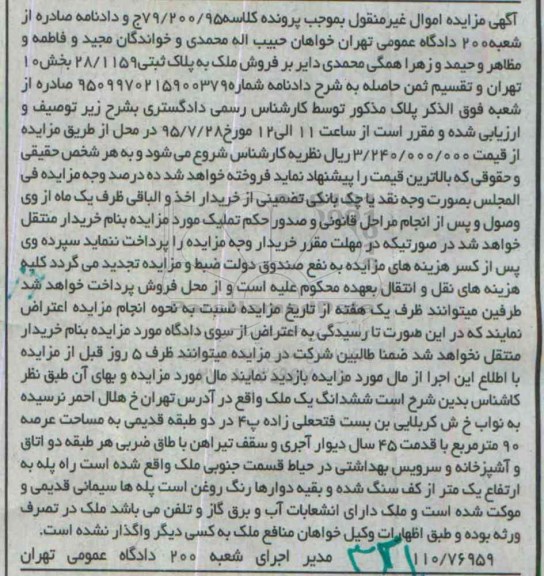 آگهی مزایده اموال غیرمنقول بموجب پرونده کلاسه۷۹/۲۰۰/۹۵ج و دادنامه صادره از
شعبه۲۰۰ دادگاه عمومی تهران خواهان حبیب اله محمدی و خواندگان مجید و فاطمه و
مظاهر و حیمد و زهرا همگی محمدی دایر بر فروش ملک به پلاک ثبتی۲۸/۱۱۵۹ بخش۱۰
تهران و تقسیم ثمن حاصله به شرح دادنامه شماره۹۵۰۹۹۷۰۲۱۵۹۰۰۳۷۹ صادره از
شعبه فوق الذکر پلاک مذکور توسط کارشناس رسمی دادگستری بشرح زیر توصیف و
ارزیابی شده و مقرر است از ساعت ۱۱ الی۱۲ مورخ۹۵/۷/۲۸ در محل از طریق مزایده
از قیمت ۳/۲۴۰/۰۰۰/۰۰۰ ریال نظریه کارشناس شروع می شود و به هر شخص حقیقی
و حقوقی که بالاترین قیمت را پیشنهاد نماید فروخته خواهد شد ده درصد وجه مزایده فی
المجلس بصورت وجه نقد یا چک بانکی تضمینی از خریدار اخذ و الباقی ظرف یک ماه از وی
وصول و پس از انجام مراحل قانونی و صدور حکم تملیک مورد مزایده بنام خریدار منتقل
خواهد شد در صورتیکه در مهلت مقرر خریدار وجه مزایده را پرداخت ننماید سپرده وی
پس از کسر هزینه های مزایده به نفع صندوق دولت ضبط و مزایده تجدید می گردد کلیه
هزینه های نقل و انتقال بعهده محکوم علیه است و از محل فروش پرداخت خواهد شد
طرفین میتوانند ظرف یک هفته از تاریخ مزایده نسبت به نحوه انجام مزایده اعتراض
نمایند که در این صورت تا رسیدگی به اعتراض از سوی دادگاه مورد مزایده بنام خریدار
منتقل نخواهد شد ضمنا طالبین شرکت در مزایده میتوانند ظرف ۵ روز قبل از مزایده
با اطلاع این اجرا از مال مورد مزایده بازدید نمایند مال مورد مزایده و بهای آن طبق نظر
کاشناس بدین شرح است ششدانگ یک ملک واقع در آدرس تهران خ هلال احمر نرسیده
به نواب خ ش کربلایی بن بست فتحعلی زاده پ۴ در دو طبقه قدیمی به مساحت عرصه
۹۰ مترمربع با قدمت ۴۵ سال دیوار آجری و سقف تیراهن با طاق ضربی هر طبقه دو اتاق
و آشپزخانه و سرویس بهداشتی در حیاط قسمت جنوبی ملک واقع شده است راه پله به
ارتفاع یک متر از کف سنگ شده و بقیه دوارها رنگ روغن است پله ها سیمانی قدیمی و
موکت شده است و ملک دارای انشعابات آب و برق گاز و تلفن می باشد ملک در تصرف
ورثه بوده و طبق اظهارات وکیل خواهان منافع ملک به کسی دیگر واگذار نشده است.
۱۱۰/۷۶۹۵۹ مدیر اجرای شعبه ۲۰۰ دادگاه عمومی تهران